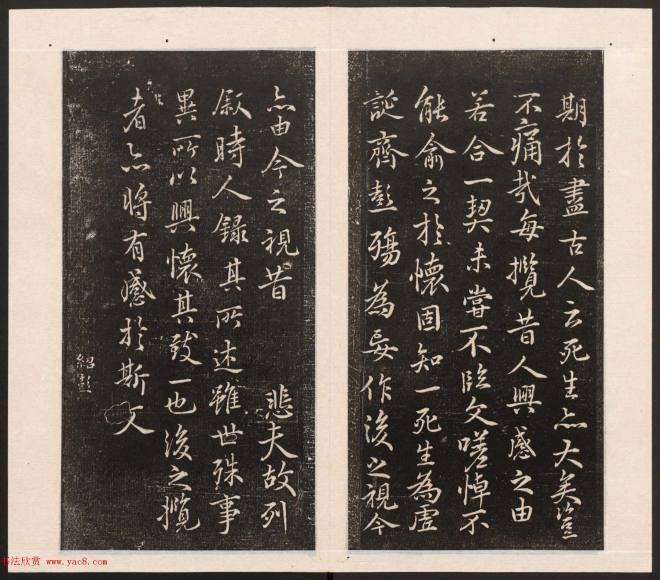 期於盡古人云死生亦大矣豈
不痛哉每攬昔人興感之由
若合一契未嘗不臨文嗟悼不
能喻之於懷固知一死生為虛
誕齊彭殤為妄作後之視今
亦由今之視昔 悲夫故列
敘時人錄其所述雖世殊事
異所以興懷其致一也後之攬
者亦將有感於斯文
紹彭
书法欣赏 www.yac8.com